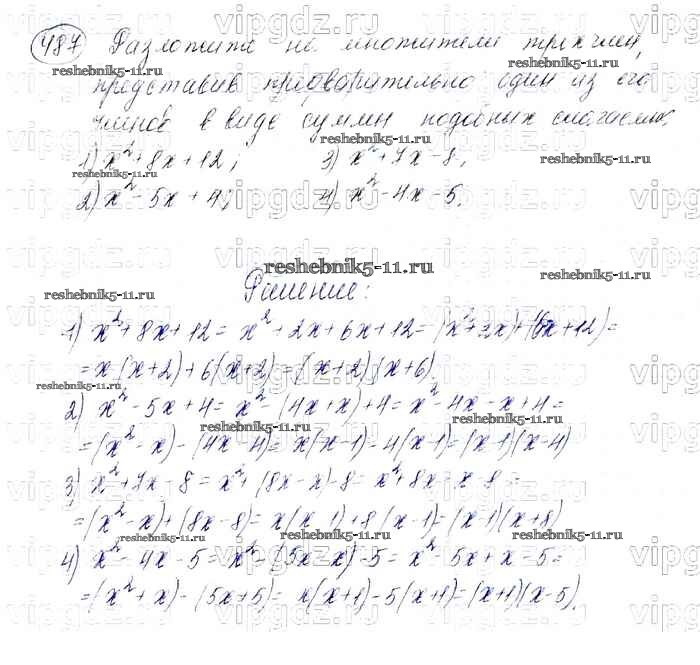 487 Разложите на множители трёхчлен,
представив предварительно один из его
членов в виде суммы подобных слагаемых:
1) x² + 8x + 12; 3) x² + 7x - 8;
2) x² - 5x + 4; 4) x² - 4x - 5.
reshebnik5-11.ru
Решение:
1) x² + 8x + 12 = x² + 2x + 6x + 12 = (x² + 2x) + (6x + 12) =
= x(x+2) + 6(x+2) = (x+2)(x+6)
2) x² - 5x + 4 = x² - (4x + x) + 4 = x² - 4x - x + 4 =
= (x² - x) - (4x - 4) = x(x-1) - 4(x-1) = (x-1)(x-4)
3) x² + 7x - 8 = x² + (8x - x) - 8 = x² + 8x - x - 8 =
= (x² - x) + (8x - 8) = x(x-1) + 8(x-1) = (x-1)(x+8)
4) x² - 4x - 5 = x² - (5x - x) - 5 = x² - 5x + x - 5 =
= (x² + x) - (5x + 5) = x(x+1) - 5(x+1) = (x+1)(x-5)
vipgdz.ru